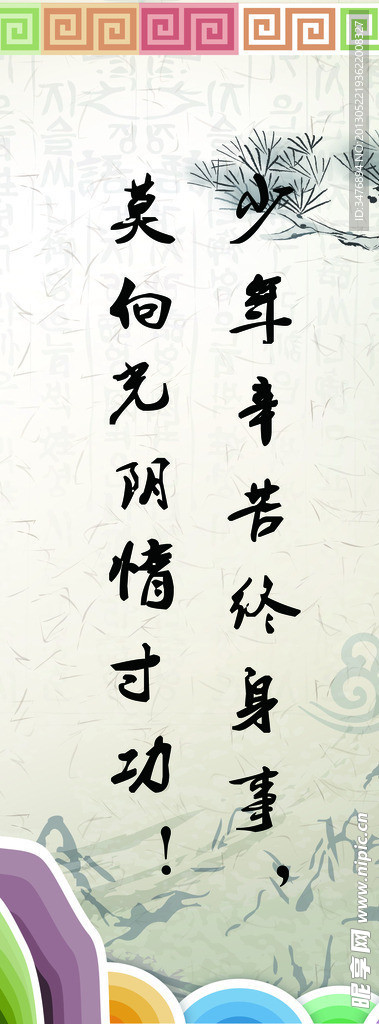 少年辛苦终身事，
莫向光阴惰寸功！
ID:3476894 NO:20130522193622008327
昵享网 www.nipic.cn